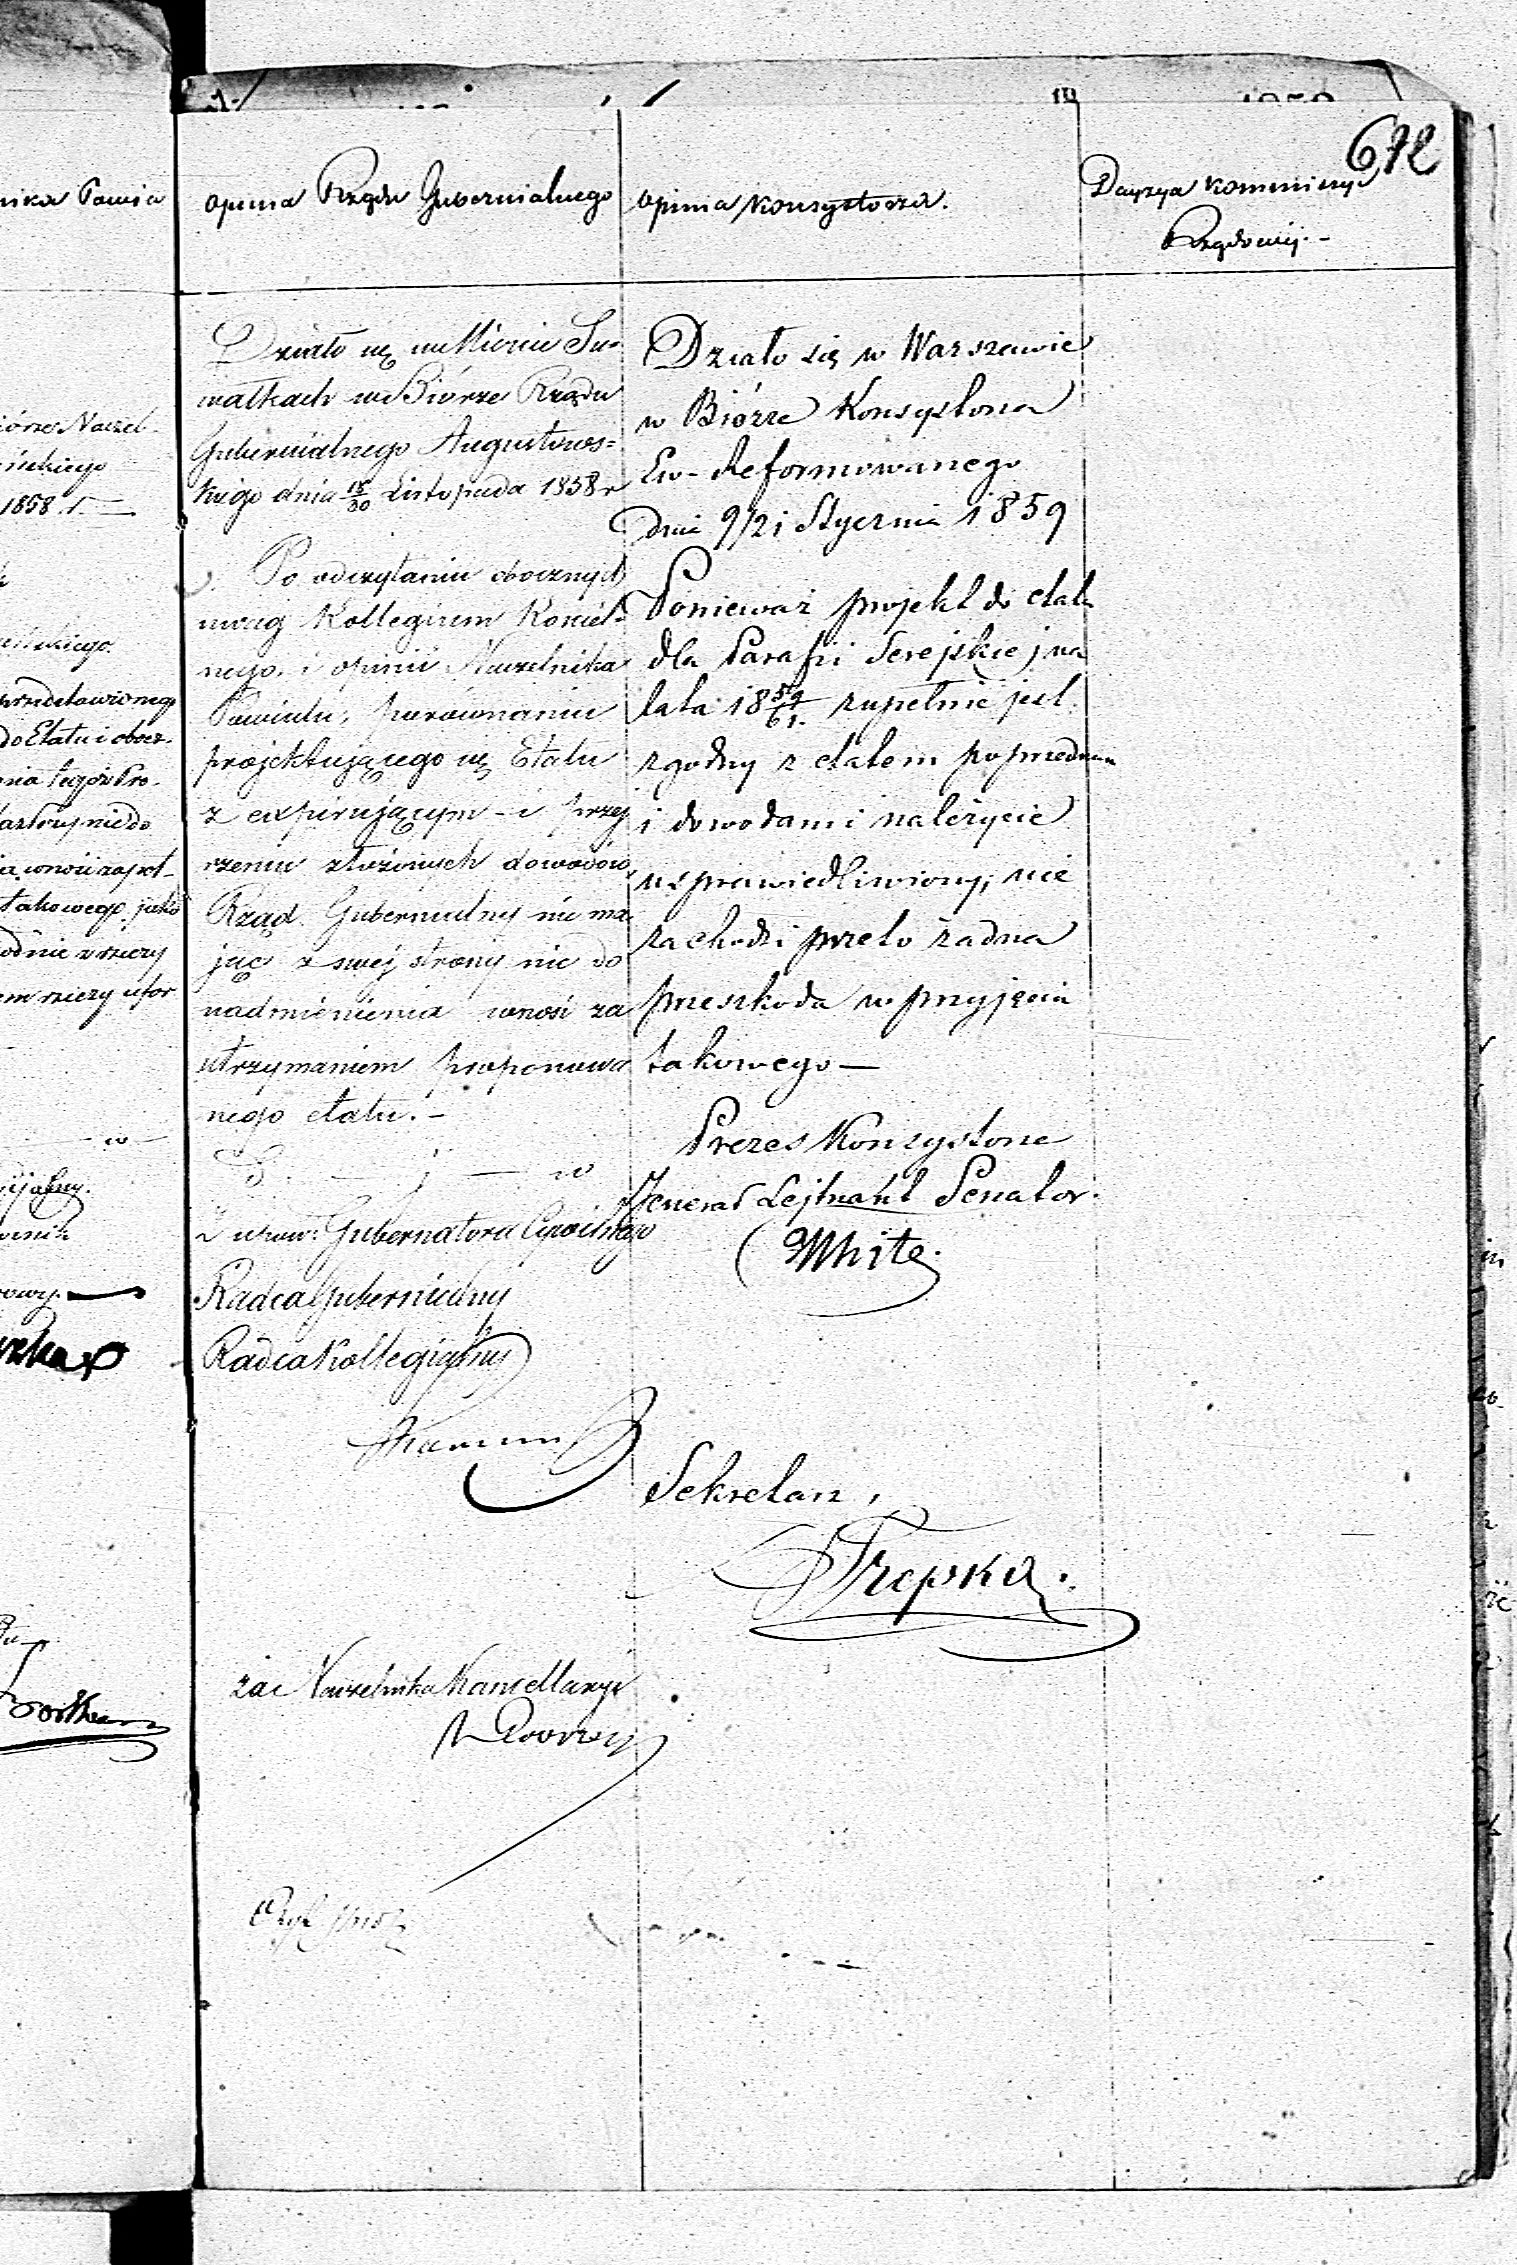 672
nika Powia
Opinia Rządu Gubernialnego
Opinia Konsystorza.
Decyzya Kommissyi
Rządowej. -
iórze Naczel-
ińskiego
1858 r. —
przedstawionego
do Etatu i obocz-
nia tegoż Pro-
nie do
takowego, jako
odnie z rzeczy
em rzeczy ufor
Działo się w Mieście Su-
wałkach w Biórze Rządu
Gubernialnego Augustows=
kiego dnia 18/30 Listopada 1858 r
Po odczytaniu obocznych
uwag Kollegium Kościel-
nego i opinii Naczelnika
Powiatu, porównaniu
projektującego się Etatu
z expirującym - i przej
rzeniu złożonych dowodów,
Rząd Gubernialny nie ma
jąc z swej strony nic do
nadmienienia wnosi za
utrzymaniem proponowa
nego etatu. -
z upow: Gubernatora Cywilnego
Radca Gubernialny
Radca Kollegialny
za Naczelnika Kancellaryi
Działo się w Warszawie
w Biórze Konsystorza
Ew- Reformowanego
dnia 9/21 Stycznia 1859
Ponieważ projekt do etatu
dla Parafii Serejskiej na
lata 18 59/61. zupełnie jest
zgodny z etatem poprzednim
i dowodami należycie
usprawiedliwiony, nie
zachodzi przeto żadna
przeszkoda w przyjęciu
takowego —
Prezes Konsystorza
Jenerał Lejtnant Senator.
White.
Sekretarz,
Trepka.